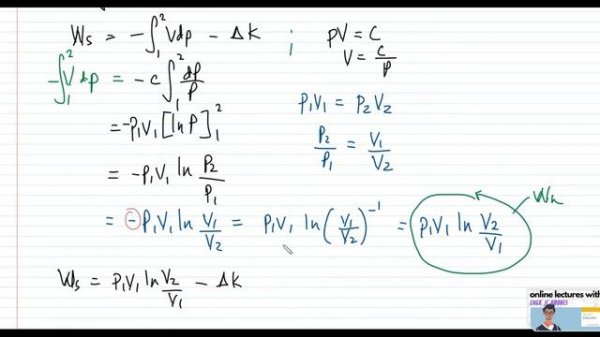 Ws = -∫₁² Vdp - ΔK ; PV = C
V = C/P
-∫₁² V dp = -c∫₁² dP/P
= -P₁V₁[ln P]₁²
P₁V₁ = P₂V₂
= -P₁V₁ ln P₂/P₁
P₂/P₁ = V₁/V₂
= -P₁V₁ ln V₁/V₂ = P₁V₁ ln(V₁/V₂)⁻¹ = P₁V₁ ln V₂/V₁
Ws = P₁V₁ ln V₂/V₁ - ΔK
online lectures with